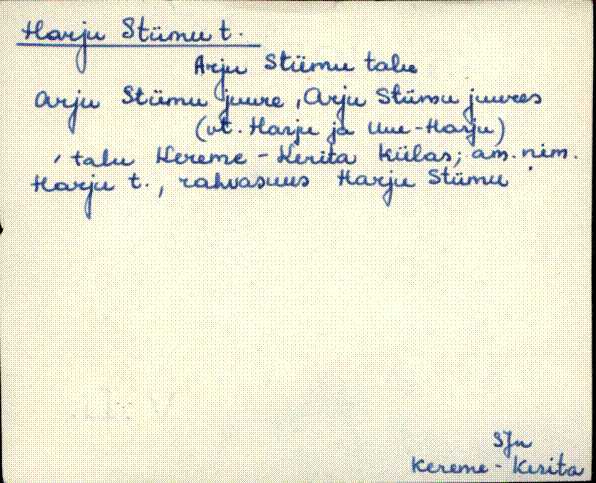 Harju Stümu t.
Arju Stümu talu
Arju Stümu juure, Arju Stümu juures
(vt. Harju ja Uue-Harju)
, talu Kereme-Kerita külas; am. nim.
Harju t., rahvasuus Harju Stümu
SJn
Kereme-Kerita